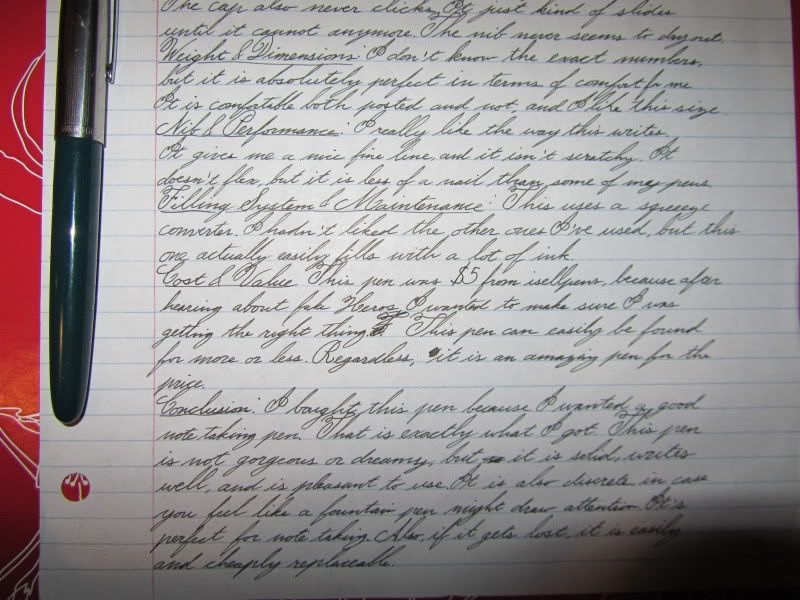 The cap also never clicks. It just kind of slides
until it cannot anymore. The nib never seems to dry out.
Weight & Dimensions: I don't know the exact numbers,
but it is absolutely perfect in terms of comfort for me.
It is comfortable both posted and not, and I like this size.
Nib & Performance: I really like the way this writes.
It gives me a nice fine line, and it isn't scratchy. It
doesn't flex, but it is less of a nail than some of my pens.
Filling System & Maintenance: This uses a squeeze
converter. I hadn't liked the other ones I've used, but this
one actually easily fills with a lot of ink.
Cost & Value This pen was $5 from isellpens, because after
hearing about fake Heros I wanted to make sure I was
getting the right thing. This pen can easily be found
for more or less. Regardless, it is an amazing pen for the
price.
Conclusion: I bought this pen because I wanted a good
note taking pen. That is exactly what I got. This pen
is not gorgeous or dreamy, but it is solid, writes
well, and is pleasant to use. It is also discrete in case
you feel like a fountain pen might draw attention. It's
perfect for note taking. Also, if it gets lost, it is easily
and cheaply replaceable.